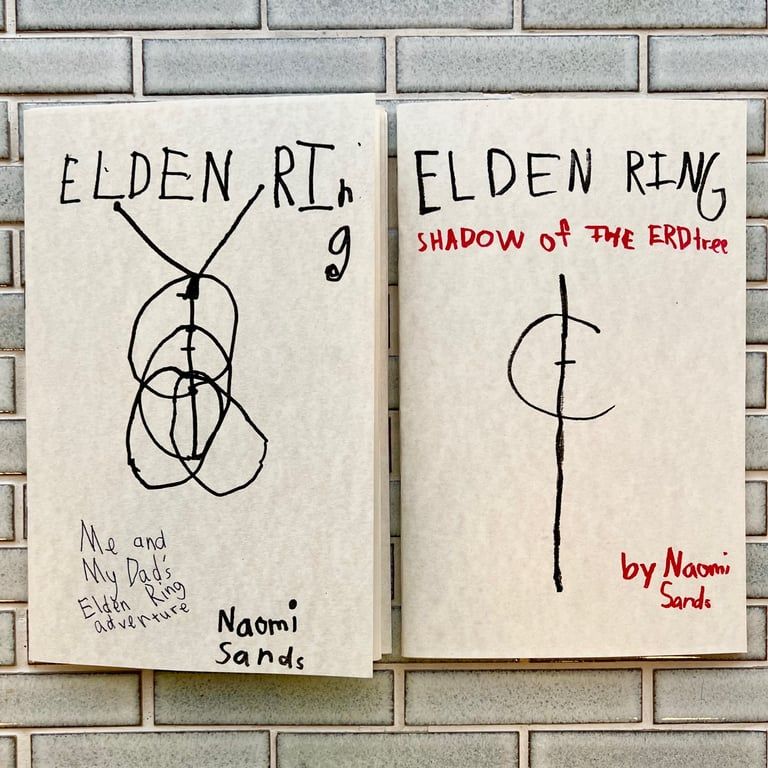 ELDEN RIn
g
Me and
My Dad's
Elden Ring
adventure
Naomi
Sands
ELDEN RING
SHADOW of THE ERDtree
by Naomi
Sands